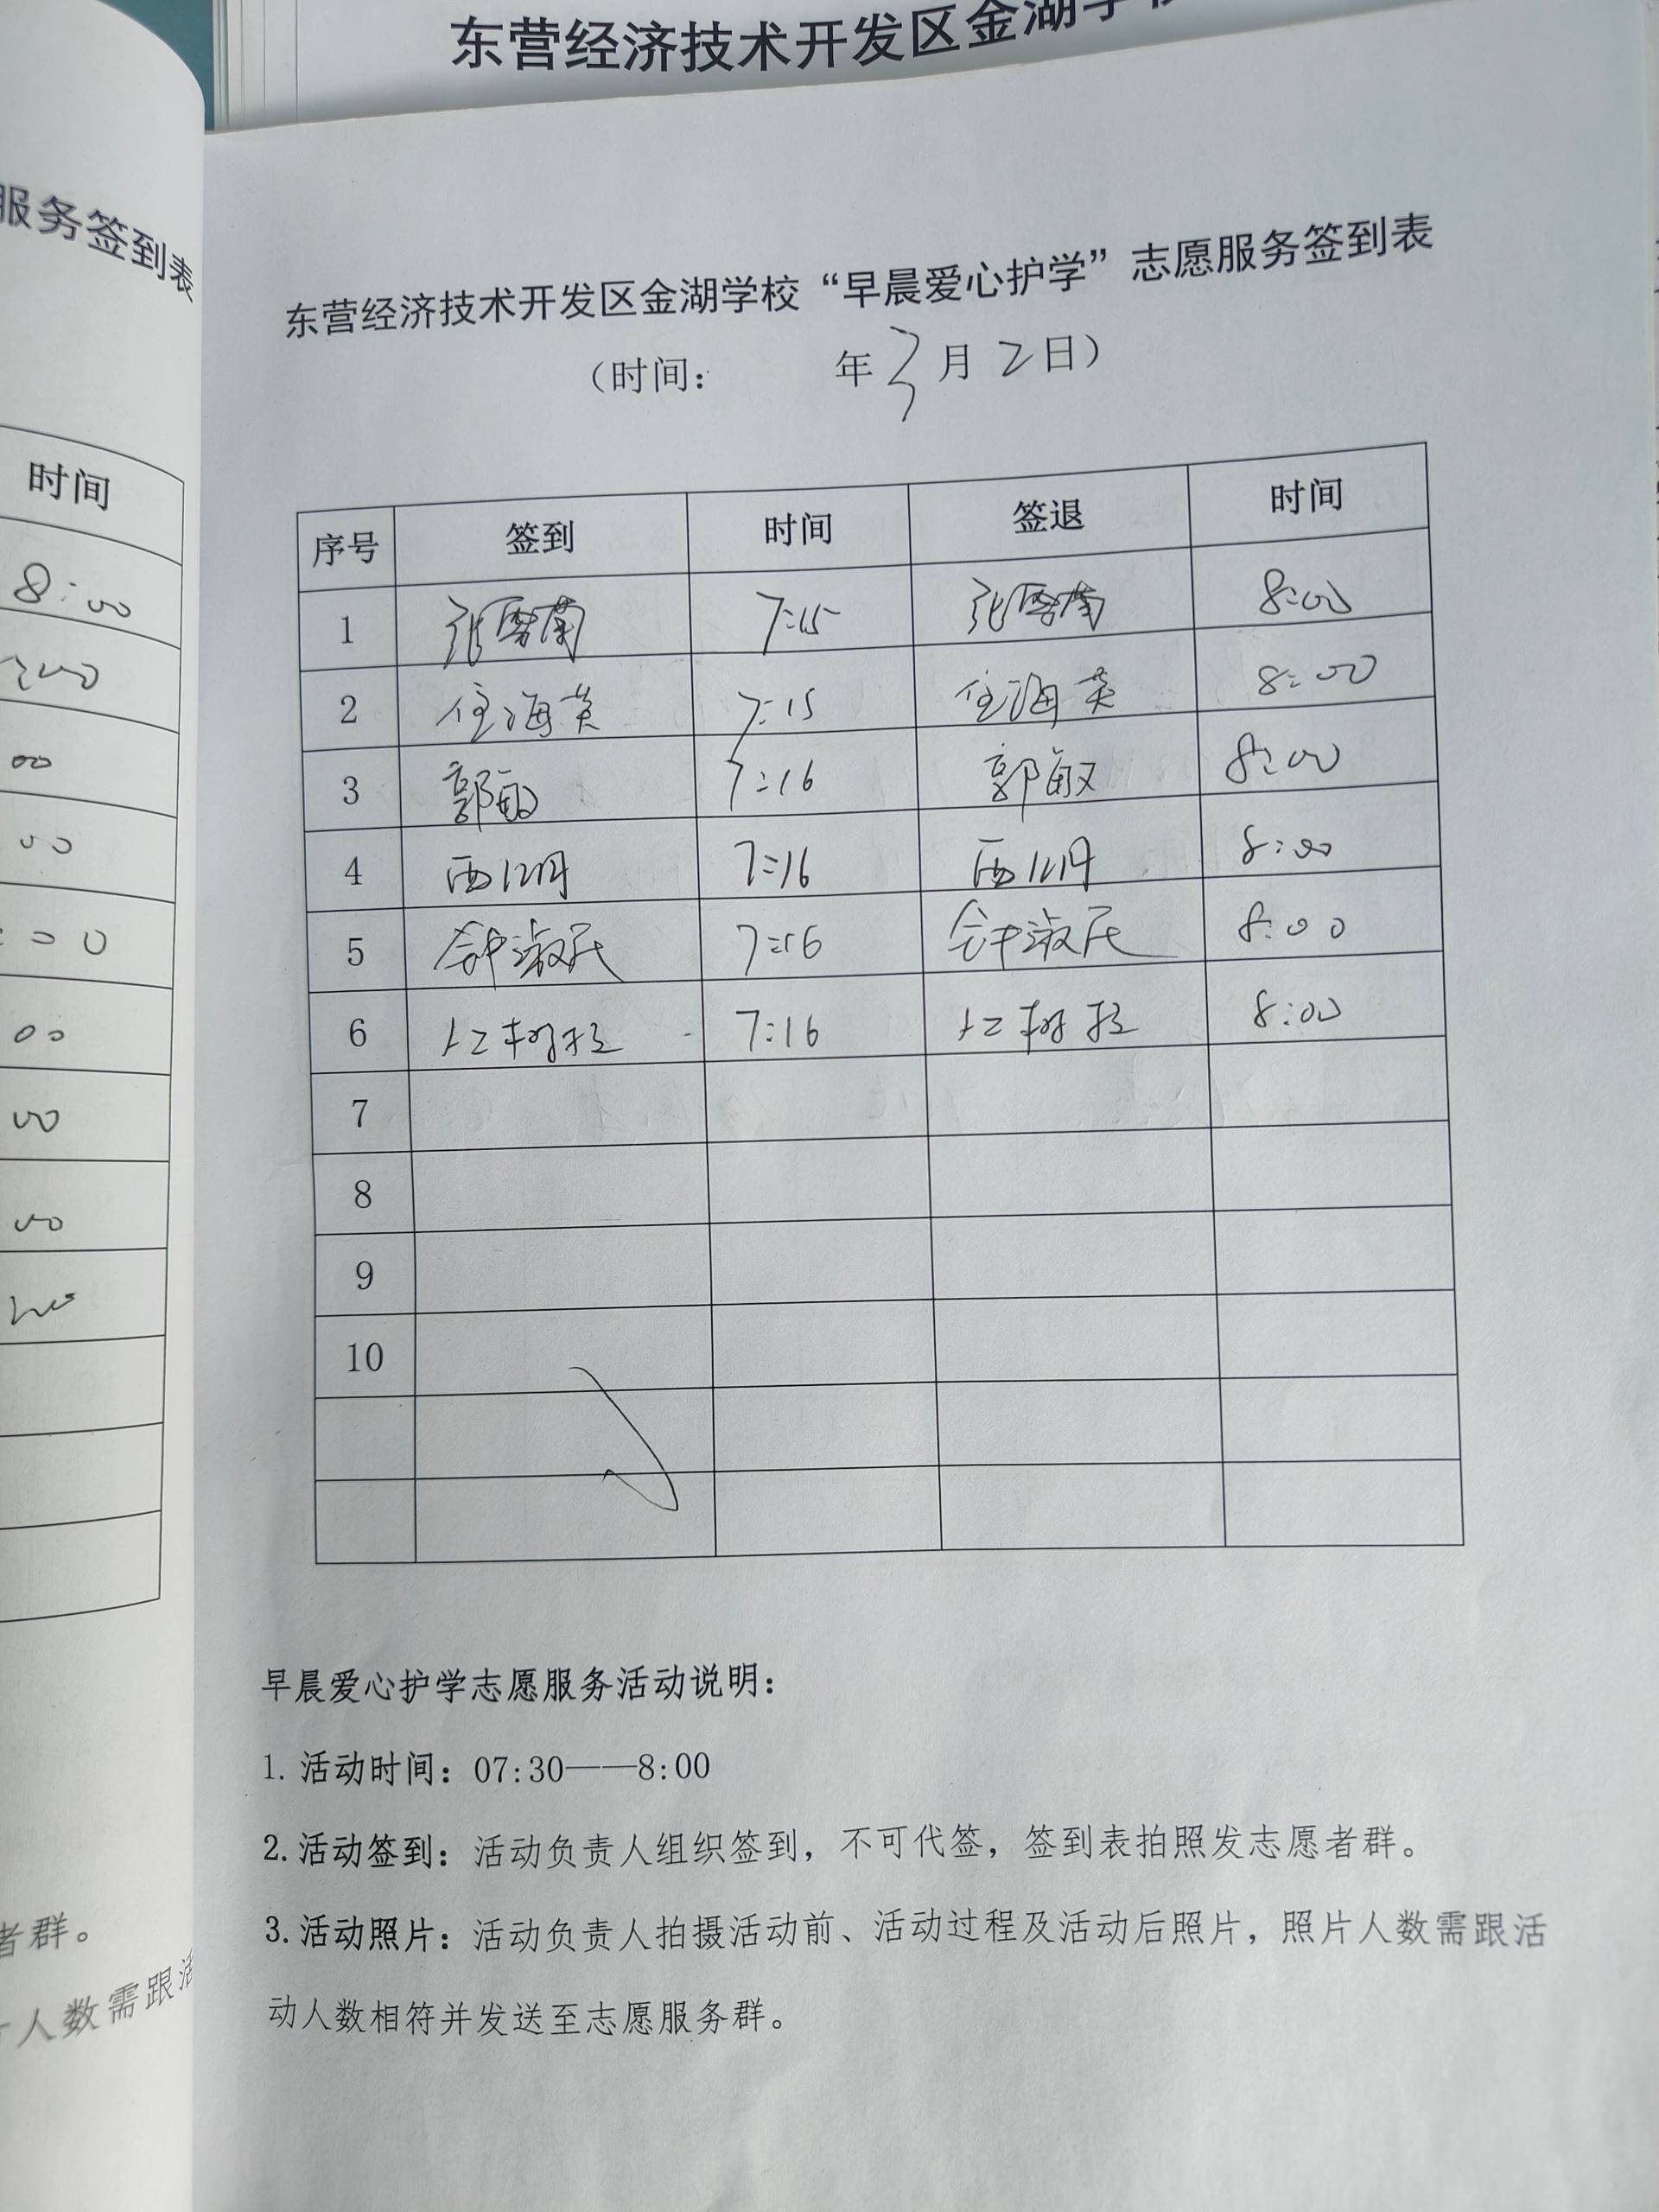 东营经济技术开发区金湖学校
服务签到表
时间
8:00
00
00
00
00
00
00
者群。
人数需跟活
东营经济技术开发区金湖学校“早晨爱心护学”志愿服务签到表
（时间： 年3月2日）
序号 签到 时间 签退 时间
1 张雪菊 7:15 张雪菊 8:00
2 任海英 7:15 任海英 8:00
3 郭敏 7:16 郭敏 8:00
4 7:16 8:00
5 钟淑民 7:16 钟淑民 8:00
6 7:16 8:00
7
8
9
10
早晨爱心护学志愿服务活动说明：
1. 活动时间：07:30——8:00
2. 活动签到：活动负责人组织签到，不可代签，签到表拍照发志愿者群。
3. 活动照片：活动负责人拍摄活动前、活动过程及活动后照片，照片人数需跟活
动人数相符并发送至志愿服务群。